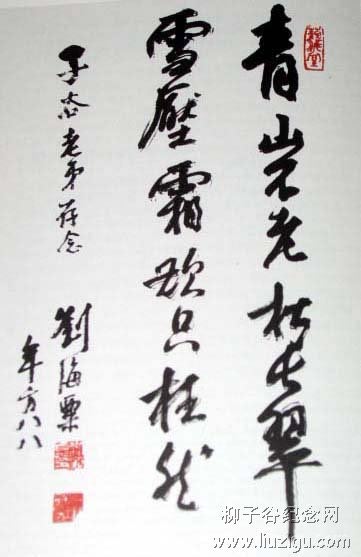 青山不老松长翠
雪壓霜欺只枉然
子谷老弟存念
劉海粟
年方八八
柳子谷纪念网
www.liuzigu.com